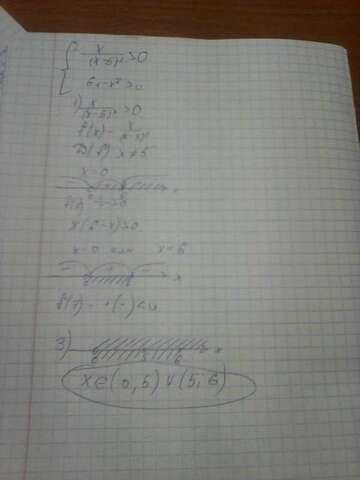 x/(x-5)² > 0
6x-x² > 0
1) x/(x-5)² > 0
f(x) = x/(x-5)²
D(f) x≠5
x=0
x
x(6-x)>0
x=0 или x=6
- + - x
f(7) = +(-) <0
3)
0 5 6 x
x∈(0,5)∪(5,6)